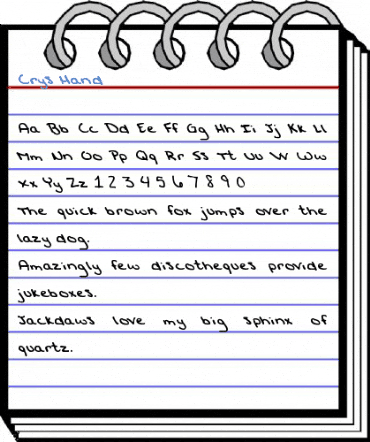 Crys Hand
Aa Bb Cc Dd Ee Ff Gg Hh Ii Jj Kk Ll
Mm Nn Oo Pp Qq Rr Ss Tt Uu Vv Ww
Xx Yy Zz 1 2 3 4 5 6 7 8 9 0
The quick brown fox jumps over the
lazy dog.
Amazingly few discotheques provide
jukeboxes.
Jackdaws love my big sphinx of
quartz.